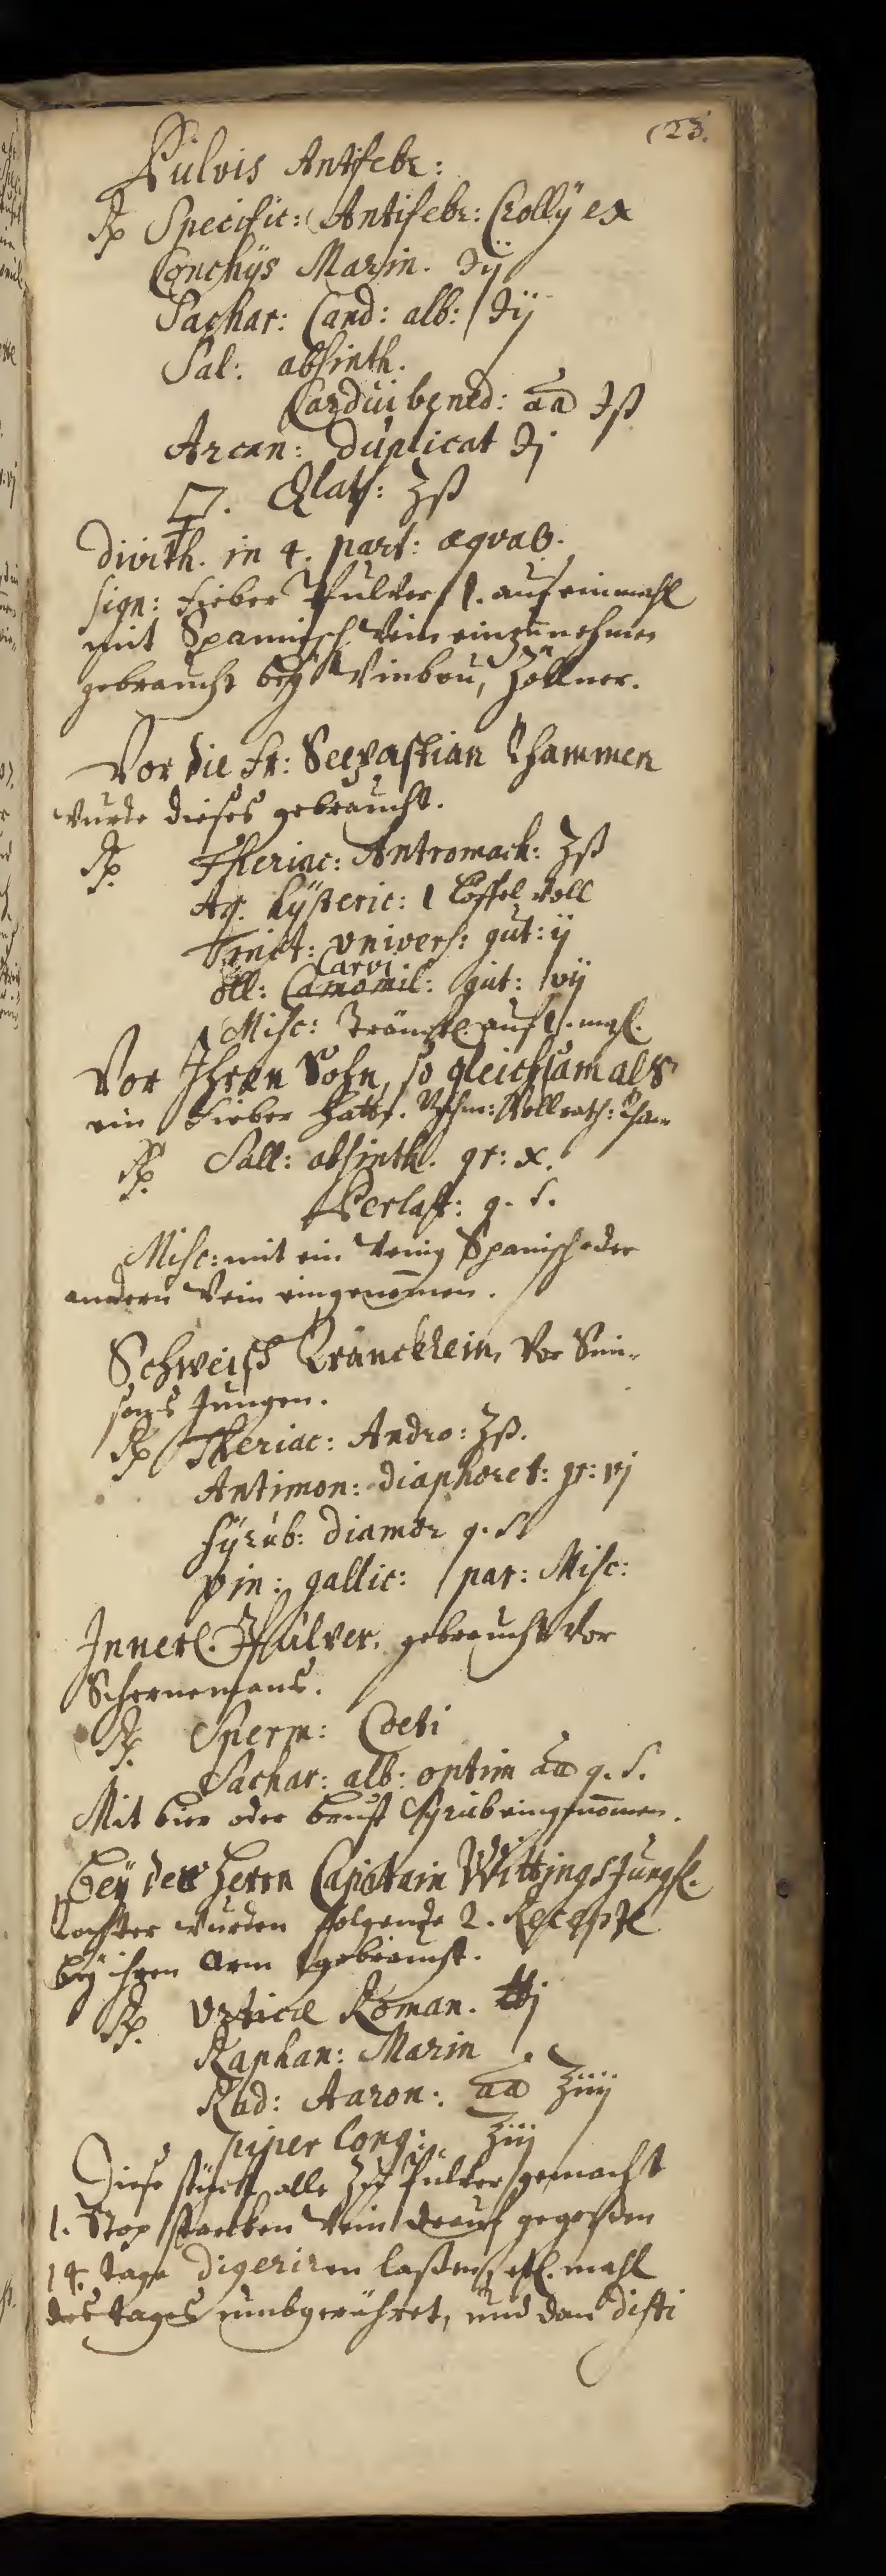 (23.
Pulvis Antifebr:
℞ Specific: Antifebr: Crollÿ ex
Conchÿs Marin. ℈ij
Sachar: Cand: alb: ℈ij
Sal: absinth.
Cardui bened: aa ℈ß
Arcan: duplicat ℈j
ʒß
divith. in 4. part: æqvaß.
sign: Fieber Pulver 1. auf einmahl
mit Spannisch Wein einzunehmen
gebraucht beÿ Zöllner.
Vor die Fr: Seebastian Thammen
wurde dieses gebraucht.
℞ Theriac: Antromach: ʒß
Aq. hÿsteric: 1 Löffel voll
Tinct: univers: gut: ij
Carvi
öll: Camomil: gut: vij
Misc: Tränckl auf 1. mahl.
Vor Ihren Sohn, so gleichsam als
ein Fieber hatte. Vollrath: Tham
℞ Sall: absinth. gr: x.
Perlaft: q. s.
Misc: mit ein wenig Spanisch oder
andern Wein eingenommen.
Schweiß Tränckhlein, vor Sim-
sons Jungen.
℞ Theriac: Andro: ʒß.
Antimon: diaphoret: gr: vj
sÿrub: diamor q. s
vin: gallic: par: Misc:
Innerl. Pulver. gebraucht vor
Schernemans.
℞ Sperm: Coeti
Sachar: alb: optim aa q. s.
Mit bier oder brust Sÿrub eingenommen.
Beÿ des Herrn Capitain Wittings Jungf.
tochter wurden folgende 2. Recepte
beÿ ihren Arm gebraucht.
℞ Urticæ Roman. ℔j
Raphan: Marin
Rad: Aaron: aa ʒiiij
piper long: ʒiij
Diese stück alle zu Pulver gemacht
1. Stop starcken Wein drauf gegoßen
14. tage digeriren laßen, etl. mahl
des tages umbgerühret, und dan disti